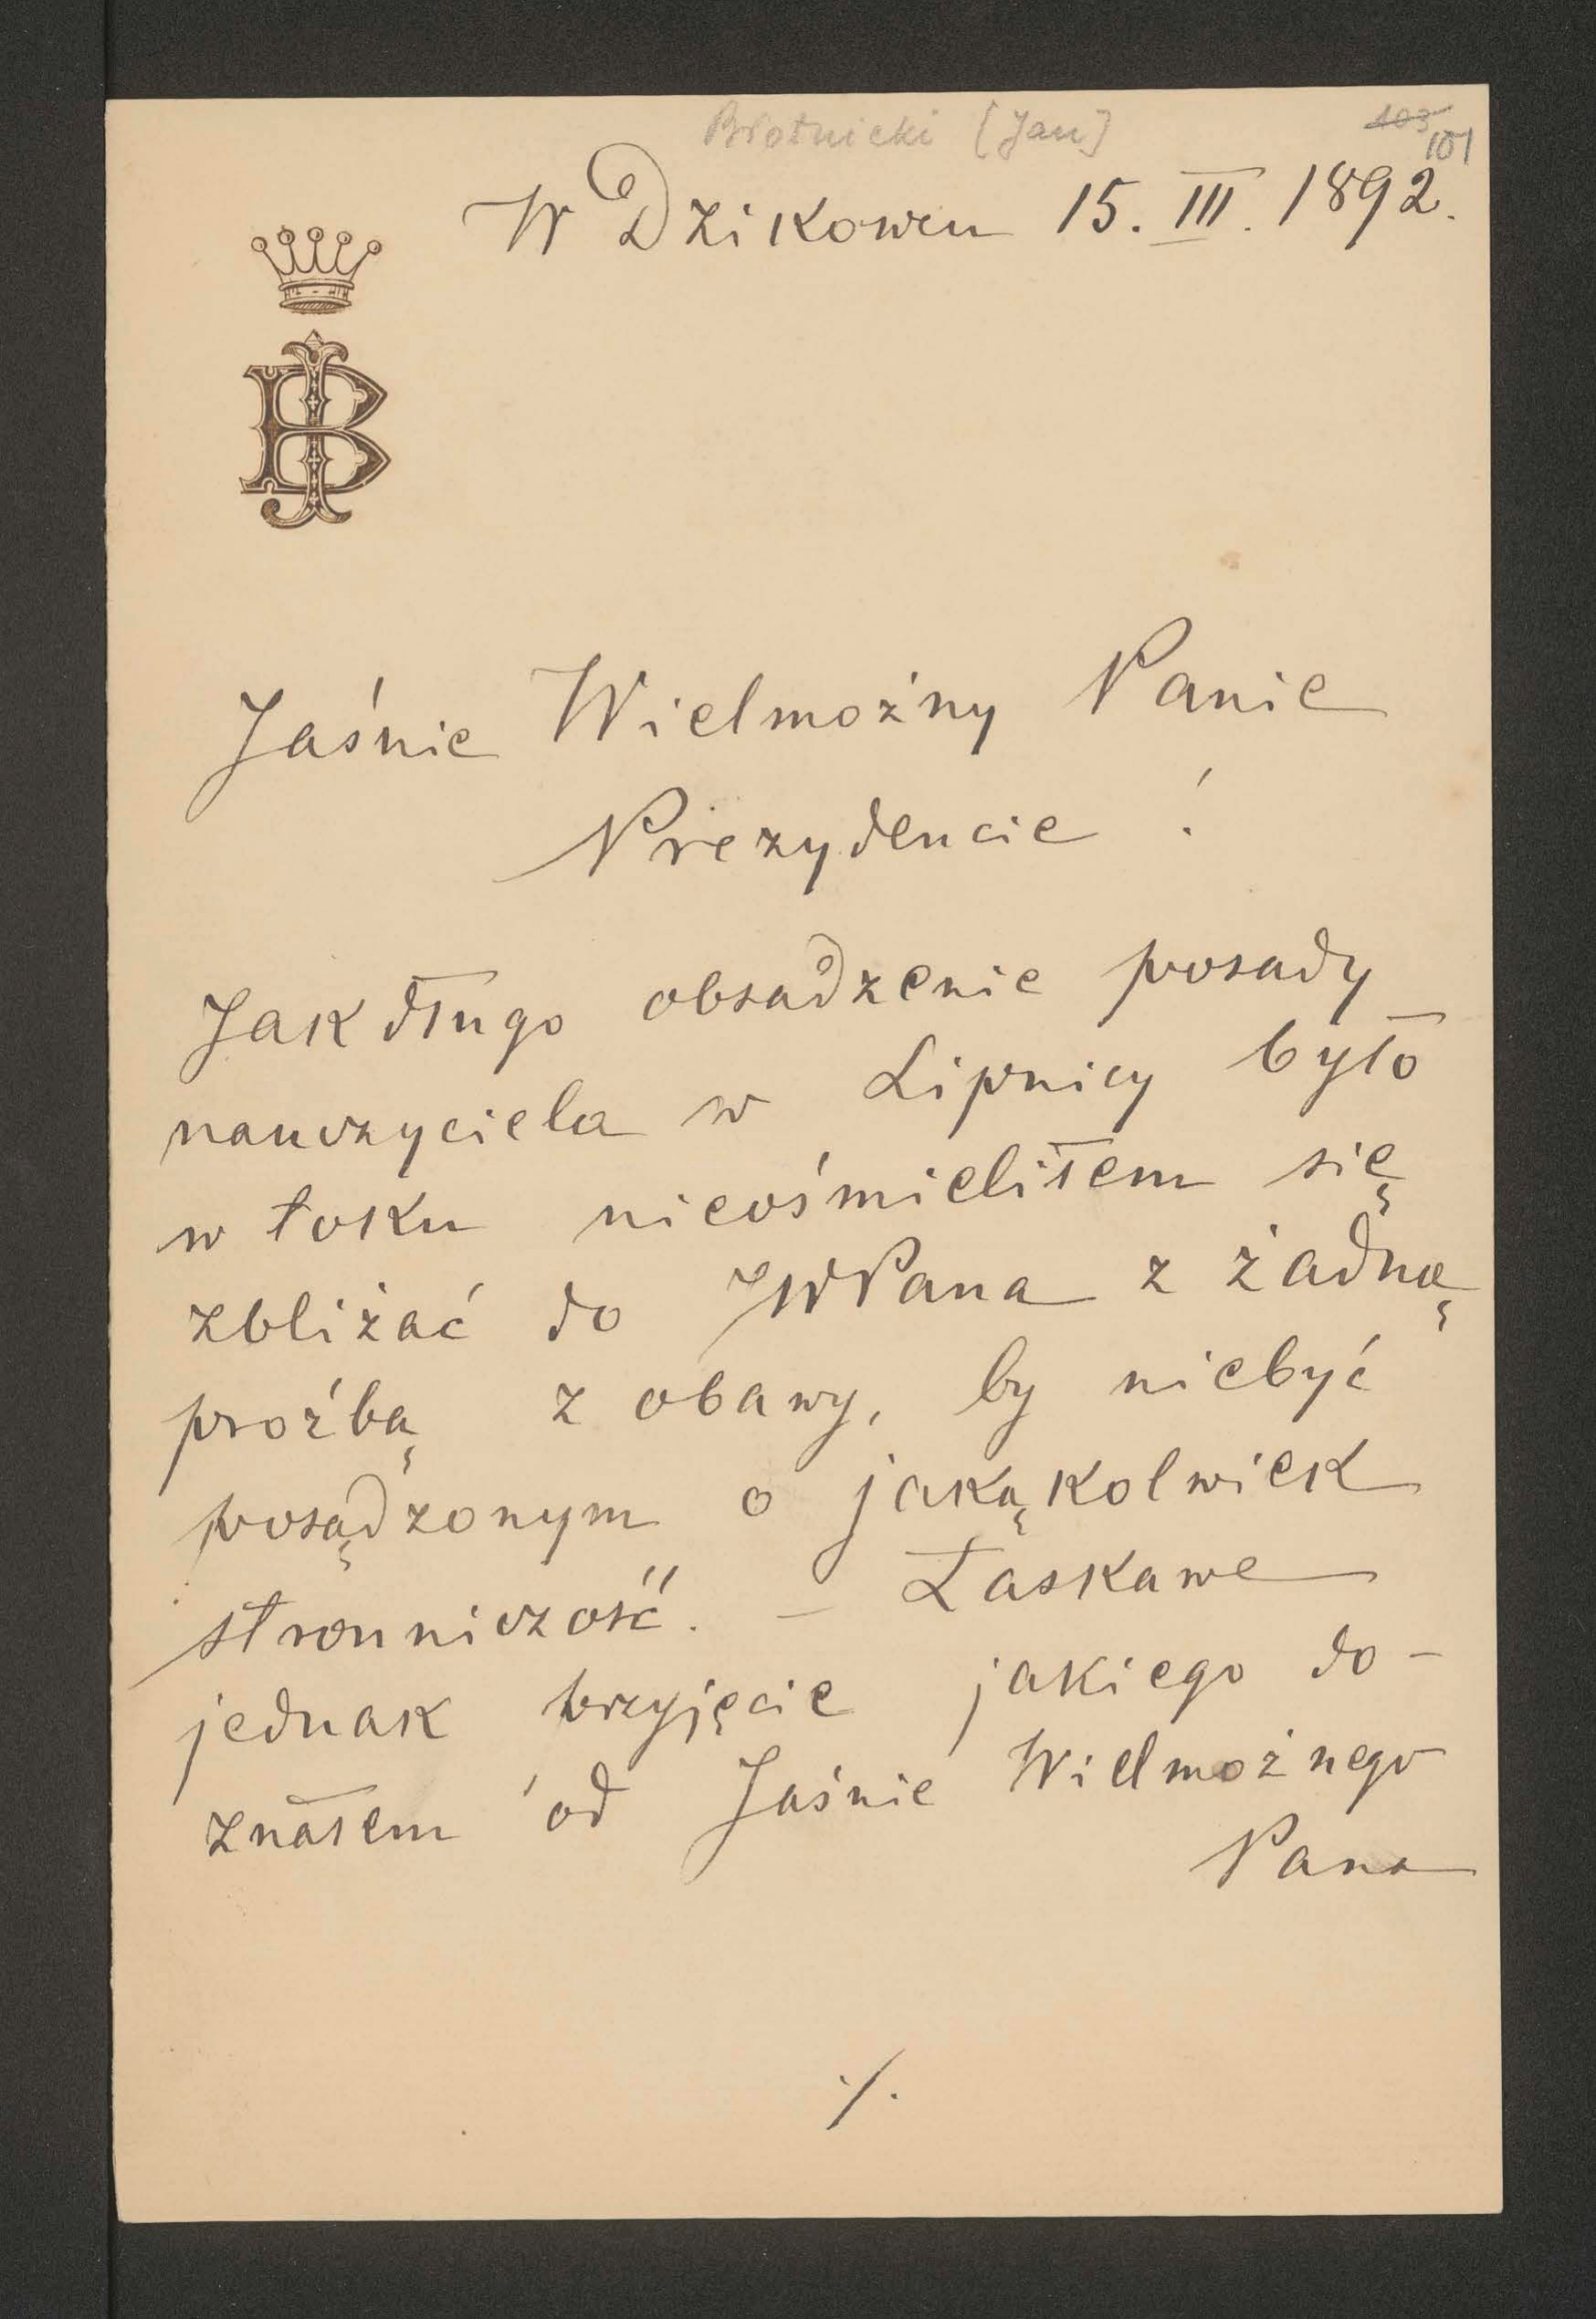 Błotnicki [Jan]
103 101
W Dzikowcu 15. III. 1892.
JB
Jaśnie Wielmożny Panie
Prezydencie !
Jak długo obsadzenie posady
nauczyciela w Lipnicy było
w toku nieośmieliłem się
zbliżać do JWPana z żadną
proźbą z obawy, by niebyć
posądzonym o jakąkolwiek
stronniczość. – Łaskawe
jednak przyjęcie jakiego do-
znałem od Jaśnie Wielmożnego
Pana
./.